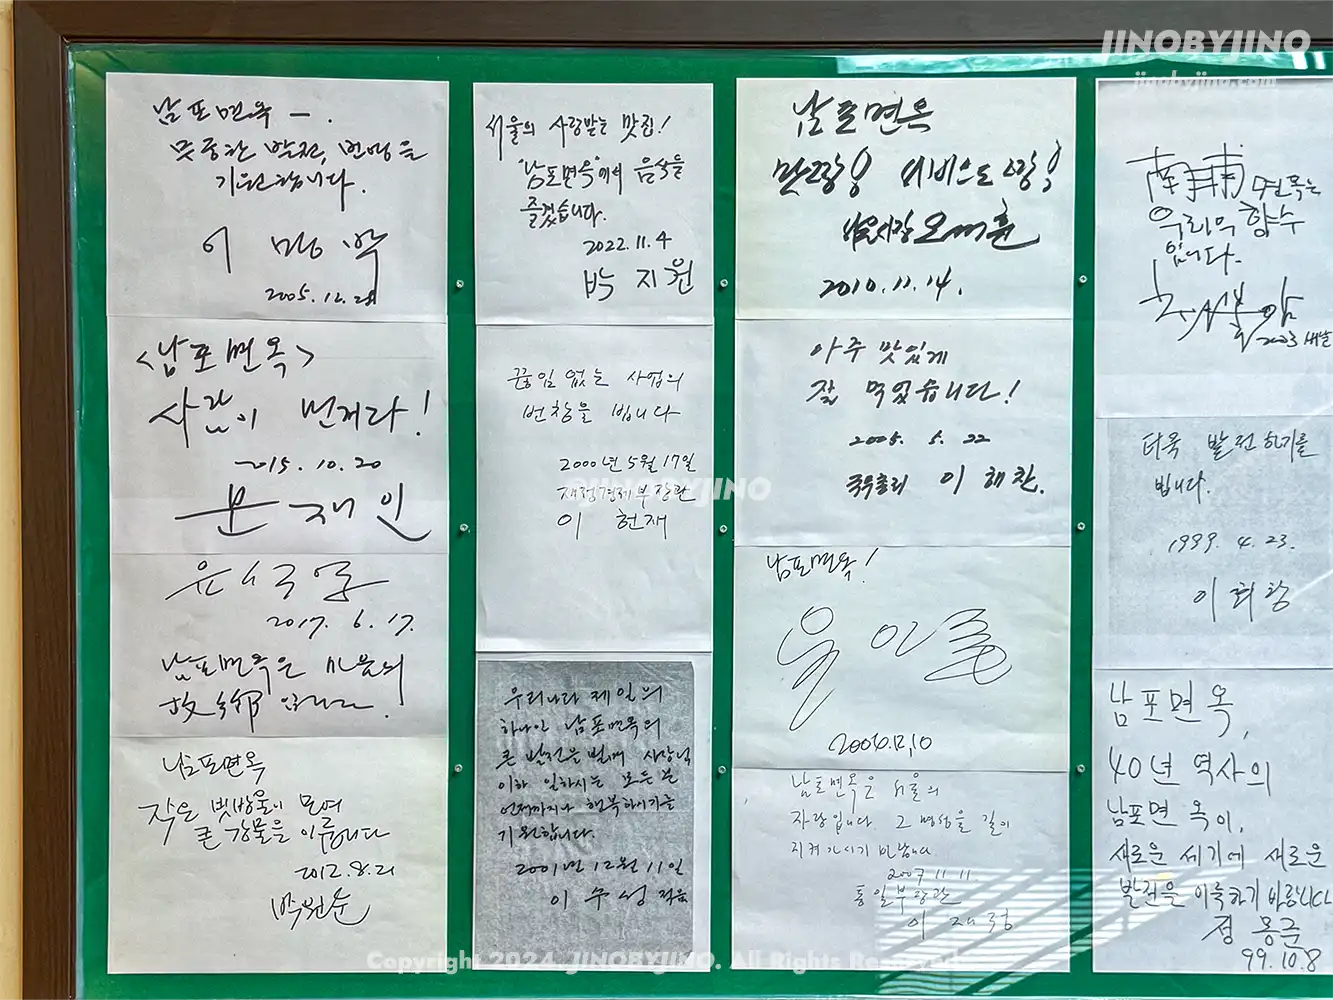 JINOBYJINO
jinobyjino.com
남포면옥 - .
무궁한 발전, 번영을
기원합니다.
이 명 박
2005. 12. 28
<남포면옥>
사람이 먼저다!
2015. 10. 20
문재인
윤석열
2017. 6. 17.
남포면옥은 마음의
故鄕입니다.
남포면옥
작은 빗방울이 모여
큰 강물을 이룹니다
2012. 8. 21
박원순
서울의 사랑받는 맛집!
"남포면옥"에서 음식을
즐겼습니다.
2022. 11. 4
박 지 원
끊임 없는 사업의
번창을 빕니다
2000년 5월 17일
재정경제부 장관
이 헌재
우리나라 제일의
하나인 남포면옥의
큰 발전을 빌며 사장님
이하 일하시는 모든 분
언제까지나 행복하시기를
기원합니다.
2001년 12월 11일
이 수성 적음
남포면옥
맛 짱! 서비스도 짱!
서울시장 오세훈
2010. 11. 14.
아주 맛있게
잘 먹었습니다!
2005. 5. 22
국무총리 이 해 찬.
남포면옥!
2006.12.10
남포면옥은 서울의
자랑입니다. 그 명성을 길이
지켜가시기 바랍니다
2007 11 11
통일부장관
이 재 정
南浦면옥은
우리의 향수
입니다.
2003 새날
더욱 발전하기를
빕니다.
1999. 4. 23.
이 회 창
남포면옥,
40년 역사의
남포면 옥이,
새로운 세기에 새로운
발전을 이룩하기 바랍니다
정 몽준
99. 10. 8
JINOBYJINO
Copyright 2024. JINOBYJINO. All Rights Reserved.